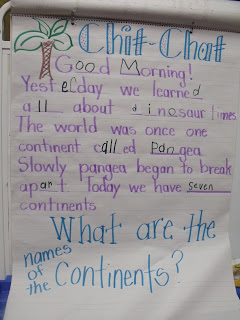 Chit-Chat
Good Morning!
Yesterday we learned
all about dinosaur times
The world was once one
continent called Pangea
Slowly pangea began to break
apart. Today we have seven
continents
What are the
names
of
the
Continents?